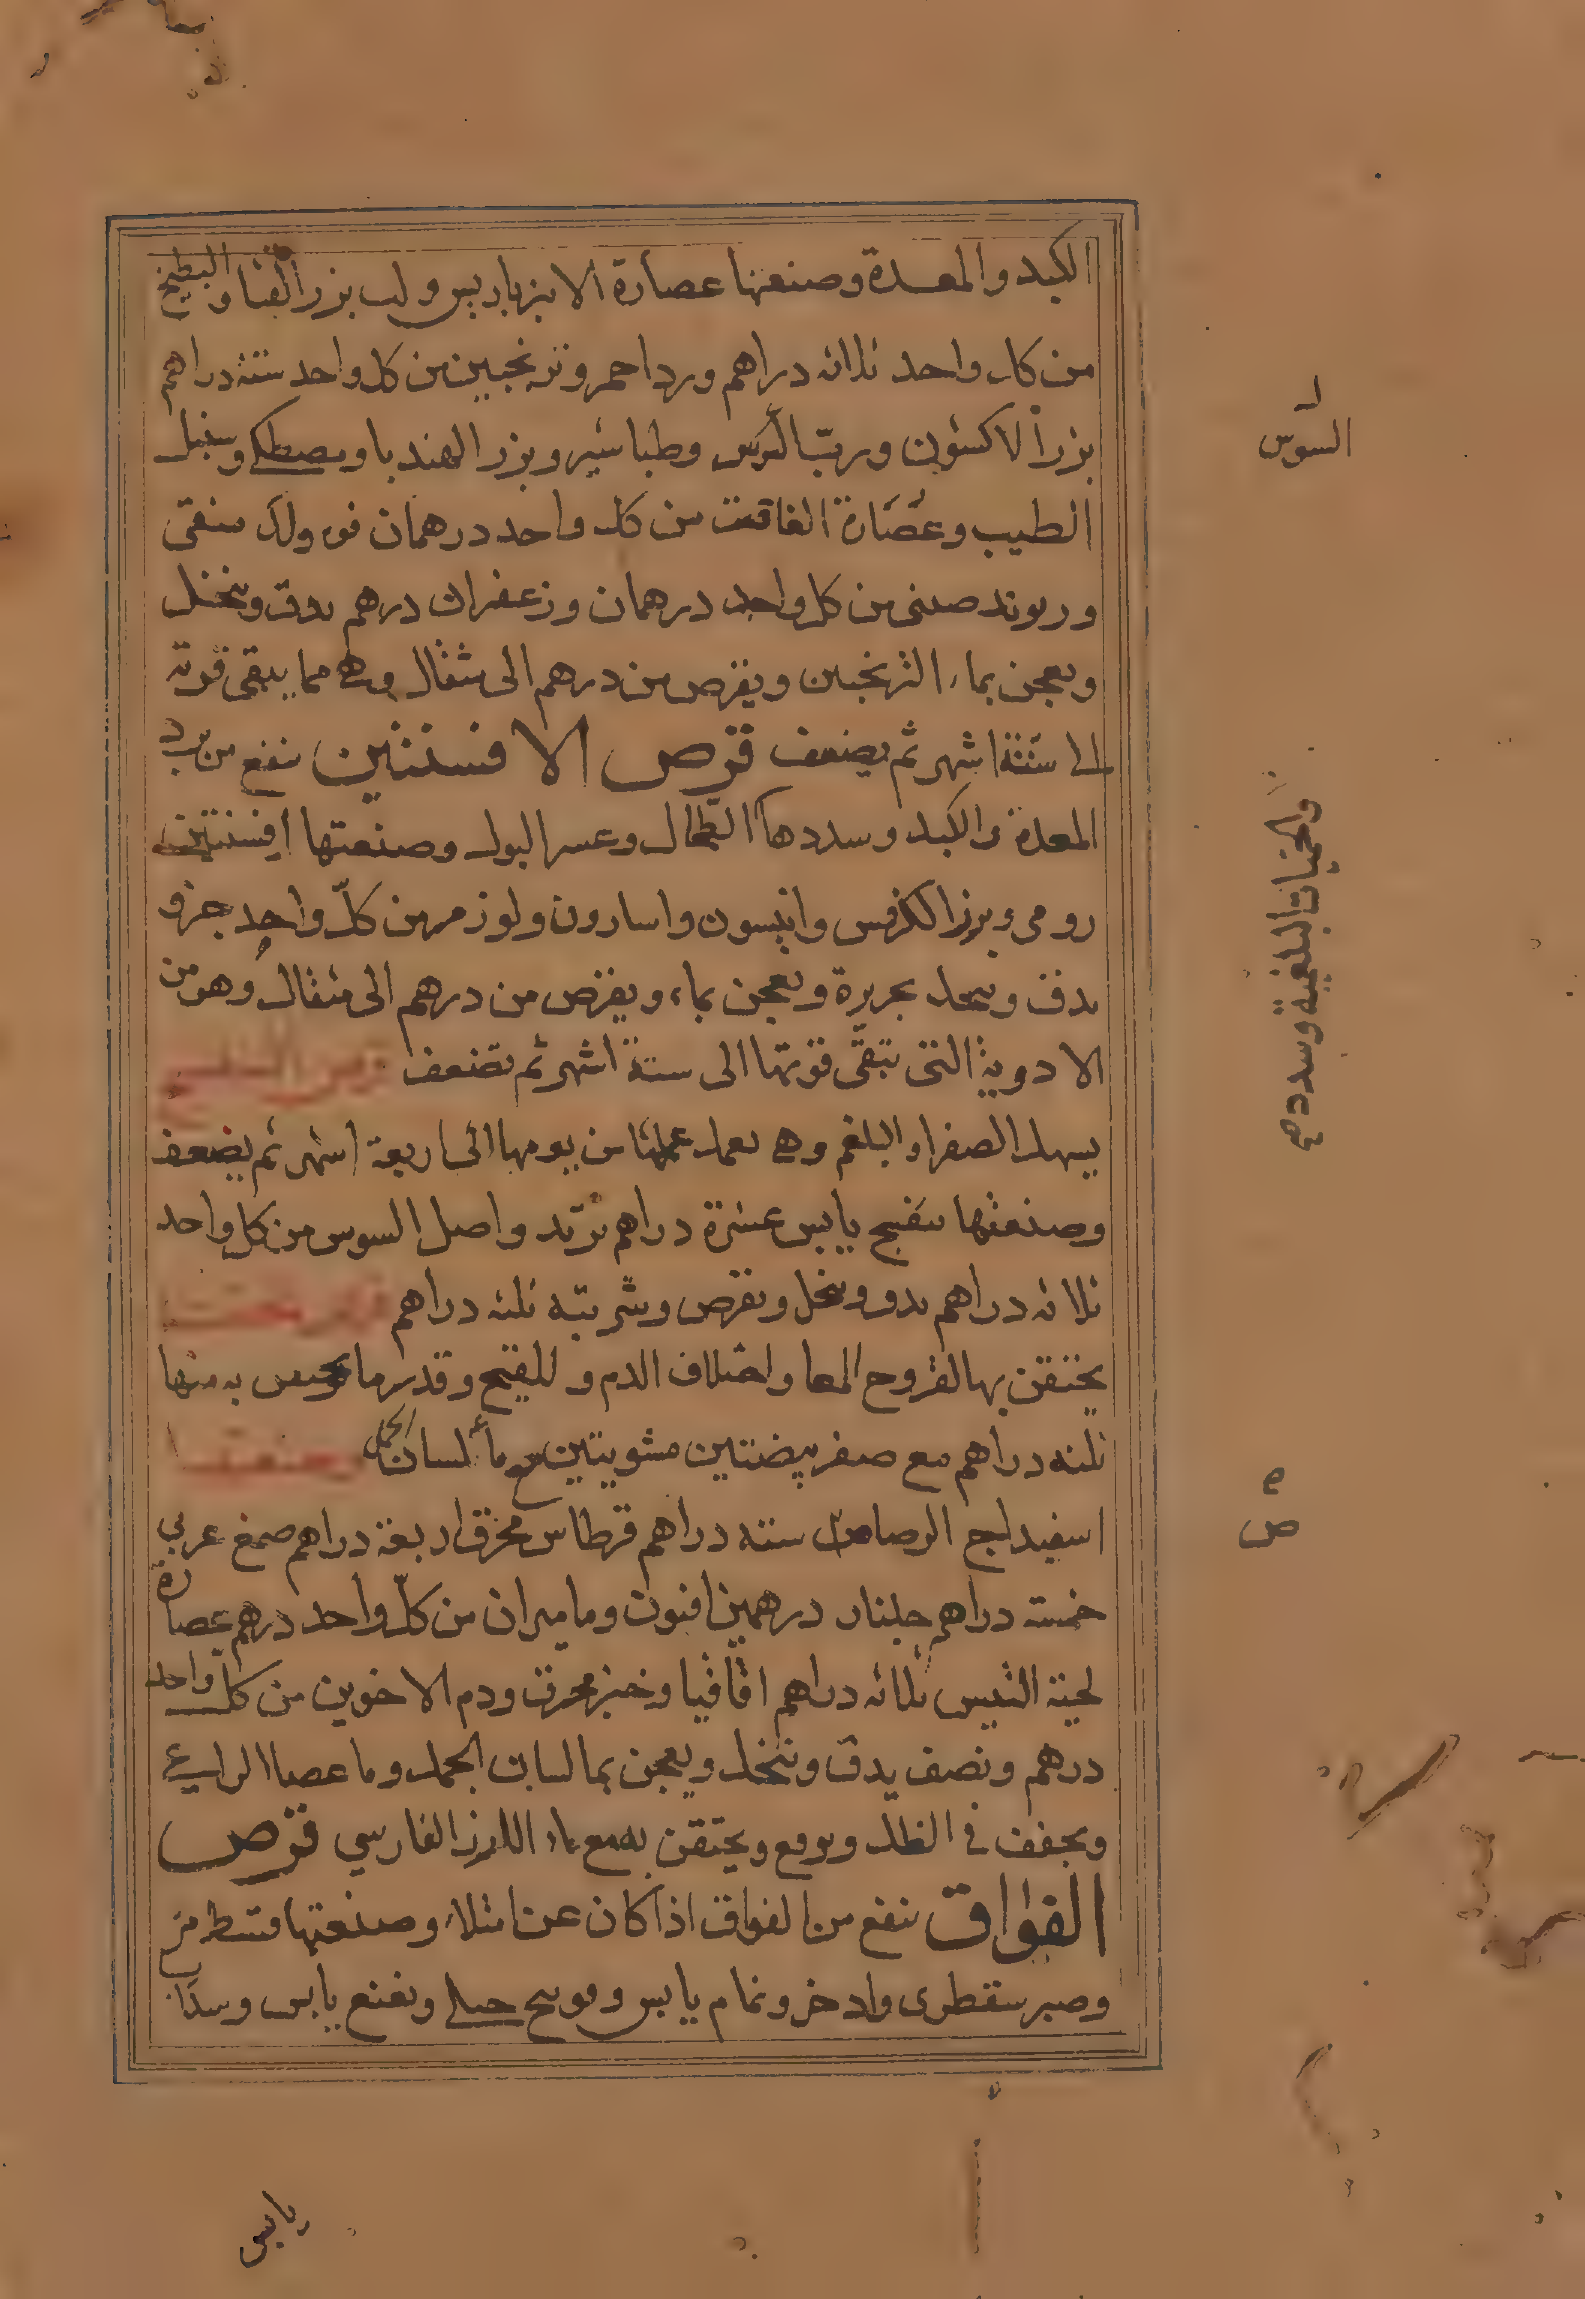 الكبد والمعدة وصنعتها عصارة الانبرباريس ولب بزر القثا والبطيخ
من كل واحد ثلاثة دراهم ورد احمر وترنجبين من كل واحد ستة دراهم
بزر الاكشوث ورب السوس وطباشير وبزر الهندبا ومصطكى وسنبل
الطيب وعصارة الغافت من كل واحد درهمان فوه ولك منقى
وريوند صينى من كل واحد درهمان وزعفران درهم يدق وينخل
ويعجن بماء الترنجبين ويقرص من درهم الى مثقال وهى مما يبقى قوته
الى ستة اشهر ثم يضعف قرص الافسنتين ينفع من برد
المعدة والكبد وسددها الطحال وعسر البول وصنعتها افسنتين
رومى وبزر الكرفس وانيسون واسارون ولوز مر من كل واحد جزو
يدق وينخل بحريرة ويعجن بماء ويقرص من درهم الى مثقال وهو من
الادوية التى تبقى قوتها الى ستة اشهر ثم تضعف قرص البنفسج
يسهل الصفرا والبلغم وهى تعمل عملها من يومها الى اربعة اشهر ثم يضعف
وصنعتها بنفسج يابس عشرة دراهم تربد واصل السوس من كل واحد
ثلاثة دراهم يدق وينخل ويقرص وشربته ثلثة دراهم
يحتقن بها لقروح المعا واختلاف الدم والقيح وقدر ما يحتقن به منها
ثلثه دراهم مع صفر بيضتين مشويتين مع ماء لسان الحمل وصنعتها
اسفيداج الرصاص ستة دراهم قرطاس محرق اربعة دراهم صمغ عربي
خمسة دراهم جلنار درهمين افيون وماميران من كل واحد درهم عصارة
لحية التيس ثلاثه دراهم اقاقيا وخبز محرق ودم الاخوين من كل واحد
درهم ونصف يدق وينخل ويعجن بما لسان الحمل وما عصا الراعى
ويجفف فى الظل ويرفع ويحتقن به مع ماء الارز الفارسي قرص
الفواق ينفع من الفواق اذا كان عن امتلاء وصنعتها قسط مر
وصبر سقطرى واذخر ونمام يابس وفوتنج جبلى ونعنع يابس وسذاب
السوس
والحميات البلغمية وسددهم
ص
يابس